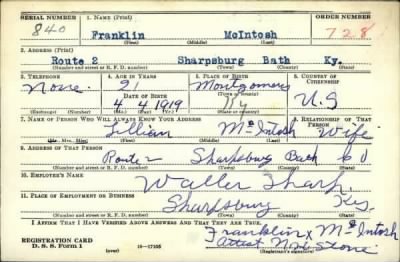 SERIAL NUMBER 1. NAME (Print) ORDER NUMBER
840 Franklin McIntosh 728
(First) (Middle) (Last)
2. ADDRESS (Print)
Route 2 Sharpsburg Bath Ky.
(Number and street or R. F. D. number) (Town) (County) (State)
3. TELEPHONE 4. AGE IN YEARS 5. PLACE OF BIRTH 6. COUNTRY OF CITIZENSHIP
None 21 Montgomery
DATE OF BIRTH (Town or county)
4 4 1919 Ky U.S
(Exchange) (Number) (Mo.) (Day) (Yr.) (State or country)
7. NAME OF PERSON WHO WILL ALWAYS KNOW YOUR ADDRESS 8. RELATIONSHIP OF THAT PERSON
Lillian McIntosh Wife
(Mr., Mrs., Miss) (First) (Middle) (Last)
9. ADDRESS OF THAT PERSON
Route 2 Sharpsburg Bath
(Number and street or R. F. D. number) (Town) (County) (State)
10. EMPLOYER'S NAME
Walter Sharp
11. PLACE OF EMPLOYMENT OR BUSINESS
Sharpsburg Ky.
(Number and street or R. F. D. number) (Town) (County) (State)
I AFFIRM THAT I HAVE VERIFIED ABOVE ANSWERS AND THAT THEY ARE TRUE.
Franklin x McIntosh
REGISTRATION CARD
D. S. S. Form 1 (over) 16—17105 (Registrant's signature)